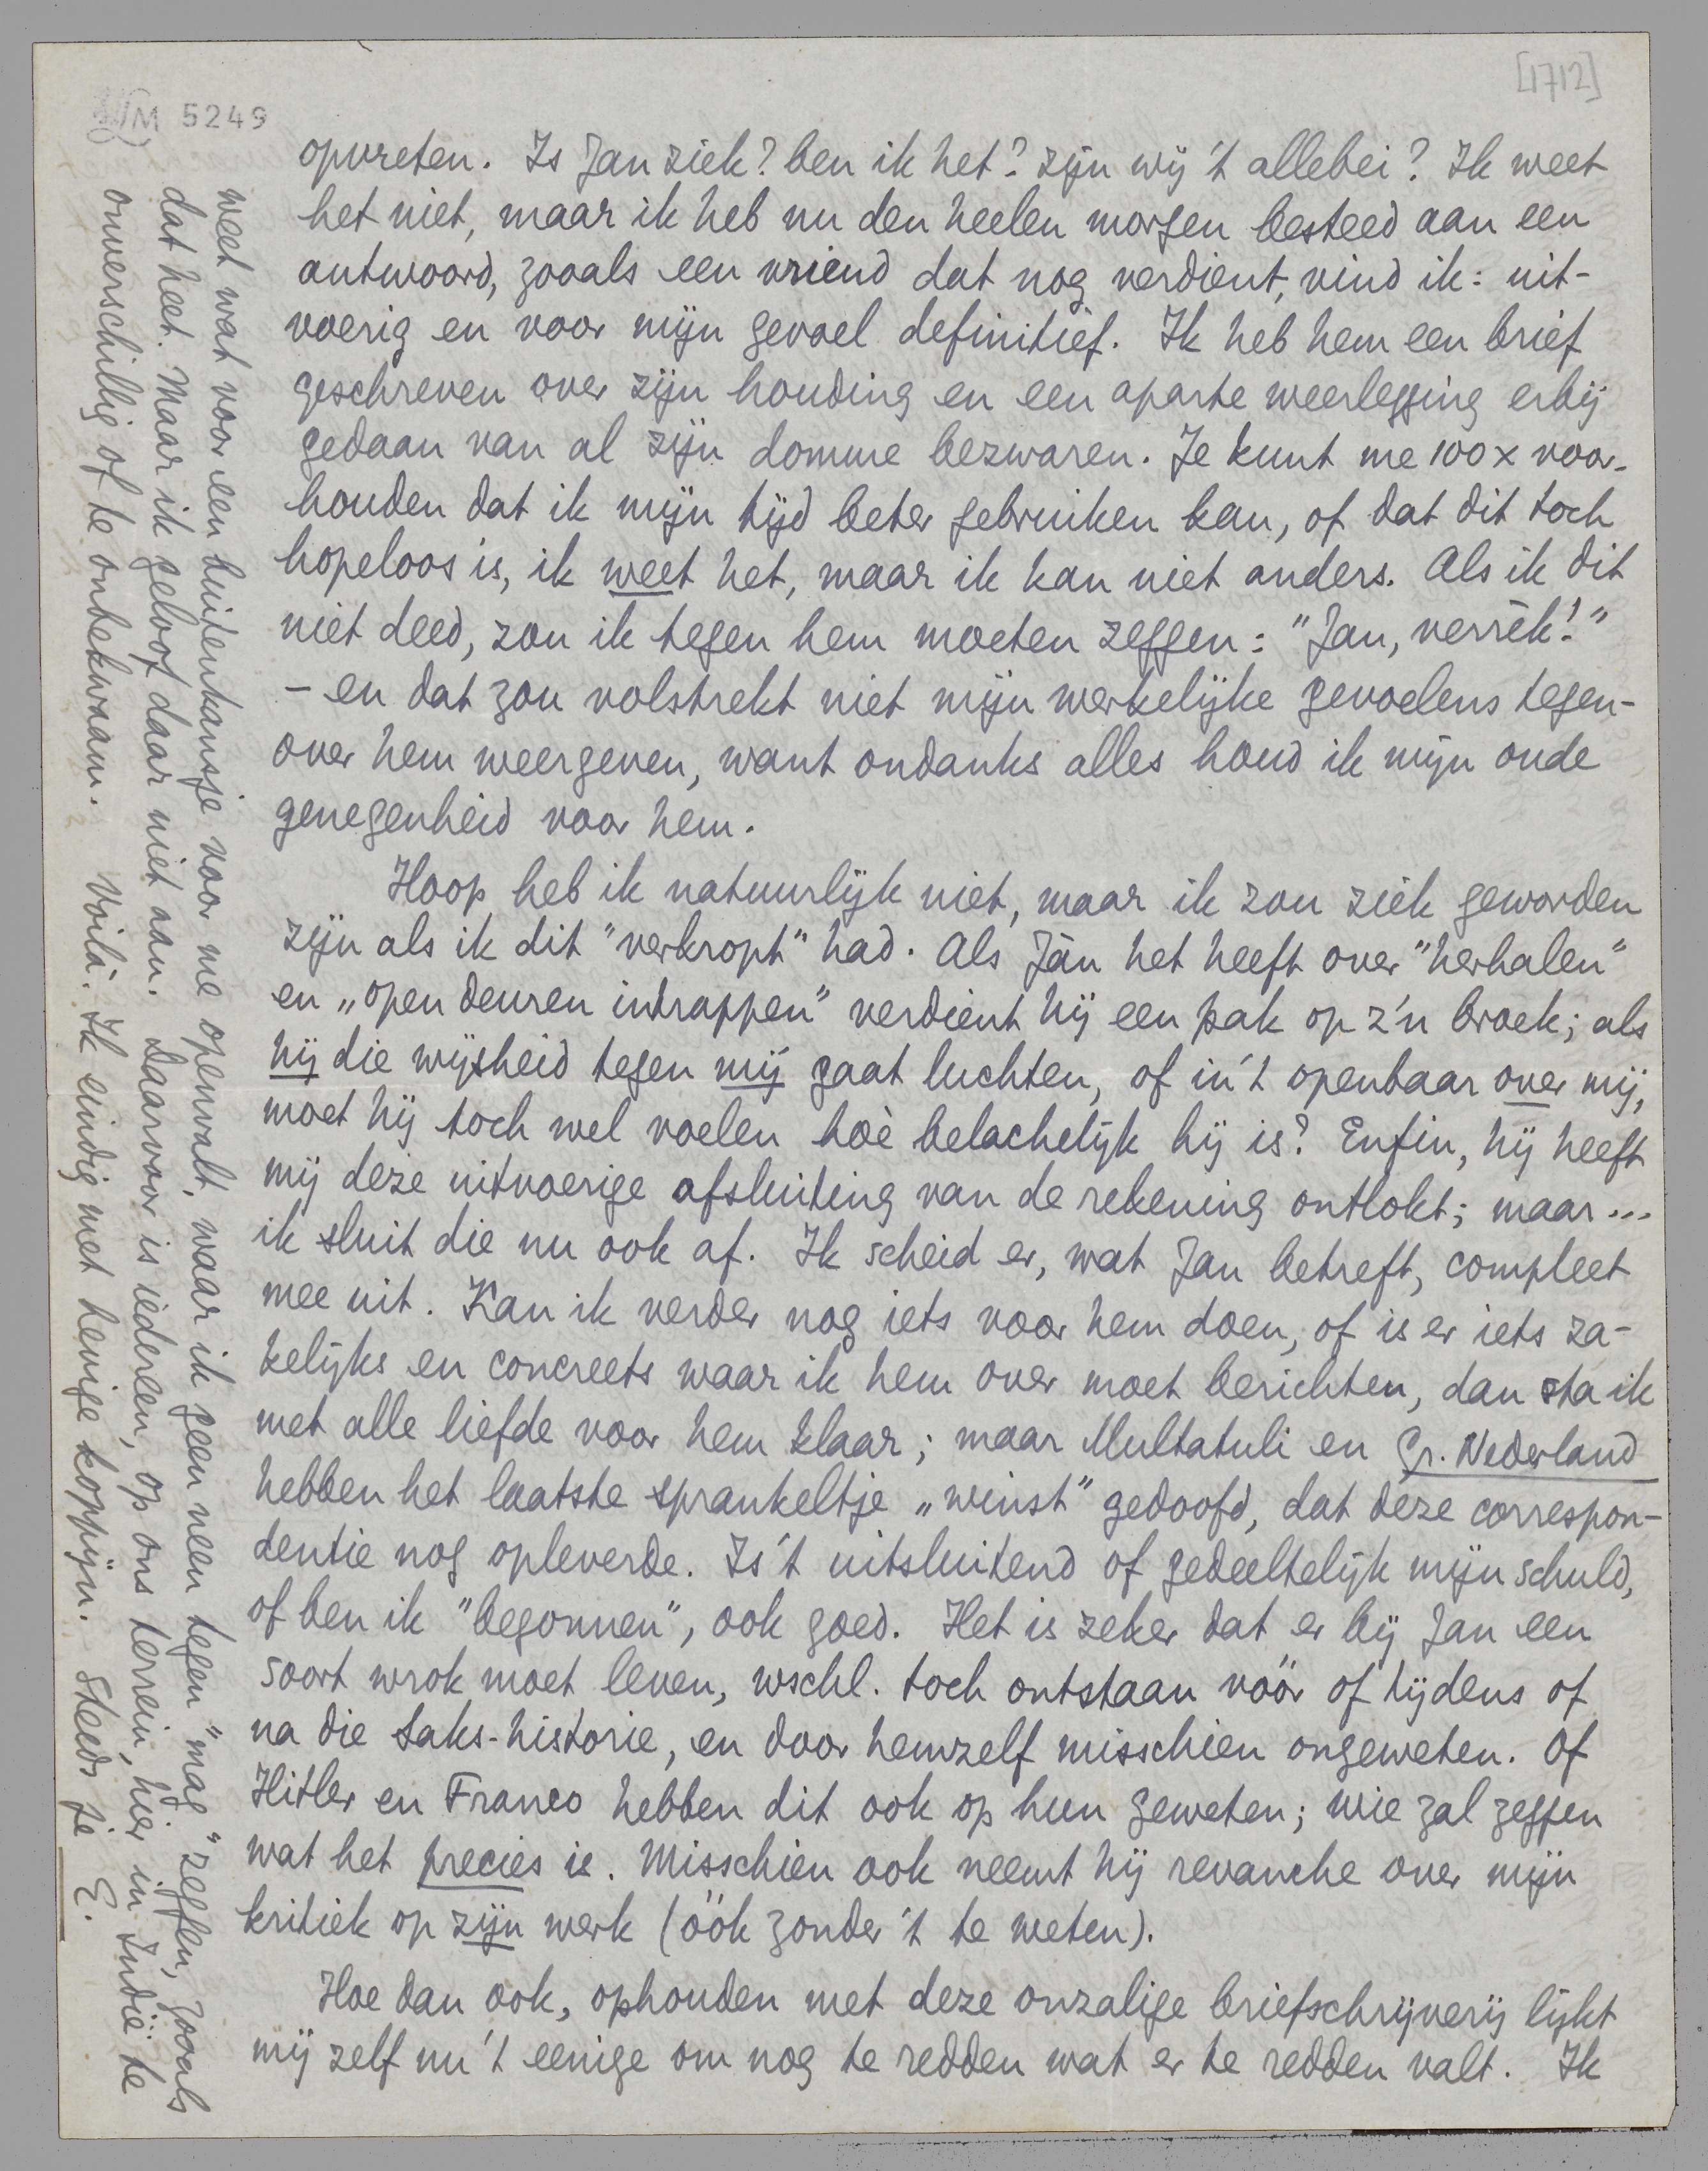 [1712]
M 5249
opvreten. Is Jan ziek? ben ik het? zijn wij 't allebei? Ik weet
het niet, maar ik heb nu den heelen morgen besteed aan een
antwoord, zooals een vriend dat nog verdient, vind ik: uit-
voerig en voor mijn gevoel definitief. Ik heb hem een brief
geschreven over zijn houding en een aparte weerlegging erbij
gedaan van al zijn domme bezwaren. Je kunt me 100x voor-
houden dat ik mijn tijd beter gebruiken kan, of dat dit toch
hopeloos is, ik weet het, maar ik kan niet anders. Als ik dit
niet deed, zou ik tegen hem moeten zeggen: "Jan, verrèk!"
- en dat zou volstrekt niet mijn werkelijke gevoelens tegen-
over hem weergeven, want ondanks alles houd ik mijn oude
genegenheid voor hem.
Hoop heb ik natuurlijk niet, maar ik zou ziek geworden
zijn als ik dit "verkropt" had. Als Jàn het heeft over "herhalen"
en „open deuren intrappen" verdient hij een pak op z'n broek; als
hij die wijsheid tegen mij gaat luchten, of in 't openbaar over mij,
moet hij toch wel voelen hoè belachelijk hij is? Enfin, hij heeft
mij deze uitvoerige afsluiting van de rekening ontlokt; maar...
ik sluit die nu ook af. Ik scheid er, wat Jan betreft, compleet
mee uit. Kan ik verder nog iets voor hem doen, of is er iets za-
kelijks en concreets waar ik hem over moet berichten, dan sta ik
met alle liefde voor hem klaar; maar Multatuli en Gr. Nederland
hebben het laatste sprankeltje „winst" gedoofd, dat deze correspon-
dentie nog opleverde. Is 't uitsluitend of gedeeltelijk mijn schuld,
of ben ik "begonnen", ook goed. Het is zeker dat er bij Jan een
soort wrok moet leven, wschl. toch ontstaan vóór of tijdens of
na die Saks-historie, en door hemzelf misschien ongeweten. Of
Hitler en Franco hebben dit ook op hun geweten; wie zal zeggen
wat het precies is. Misschien ook neemt hij revanche over mijn
kritiek op zijn werk (óók zonder 't te weten).
Hoe dan ook, ophouden met deze onzalige briefschrijverij lijkt
mij zelf nu 't eenige om nog te redden wat er te redden valt. Ik
weet wat voor een buitenkansje voor me openvalt, waar ik geen neen tegen "mag" zeggen, zooals
dat heet. Maar ik geloof daar niet aan. Daarvoor is iedereen, op ons terrein, hier in Indië te
onverschillig of te onbekwaam. Voilà. Ik eindig met hevige koppijn. Steeds je E.